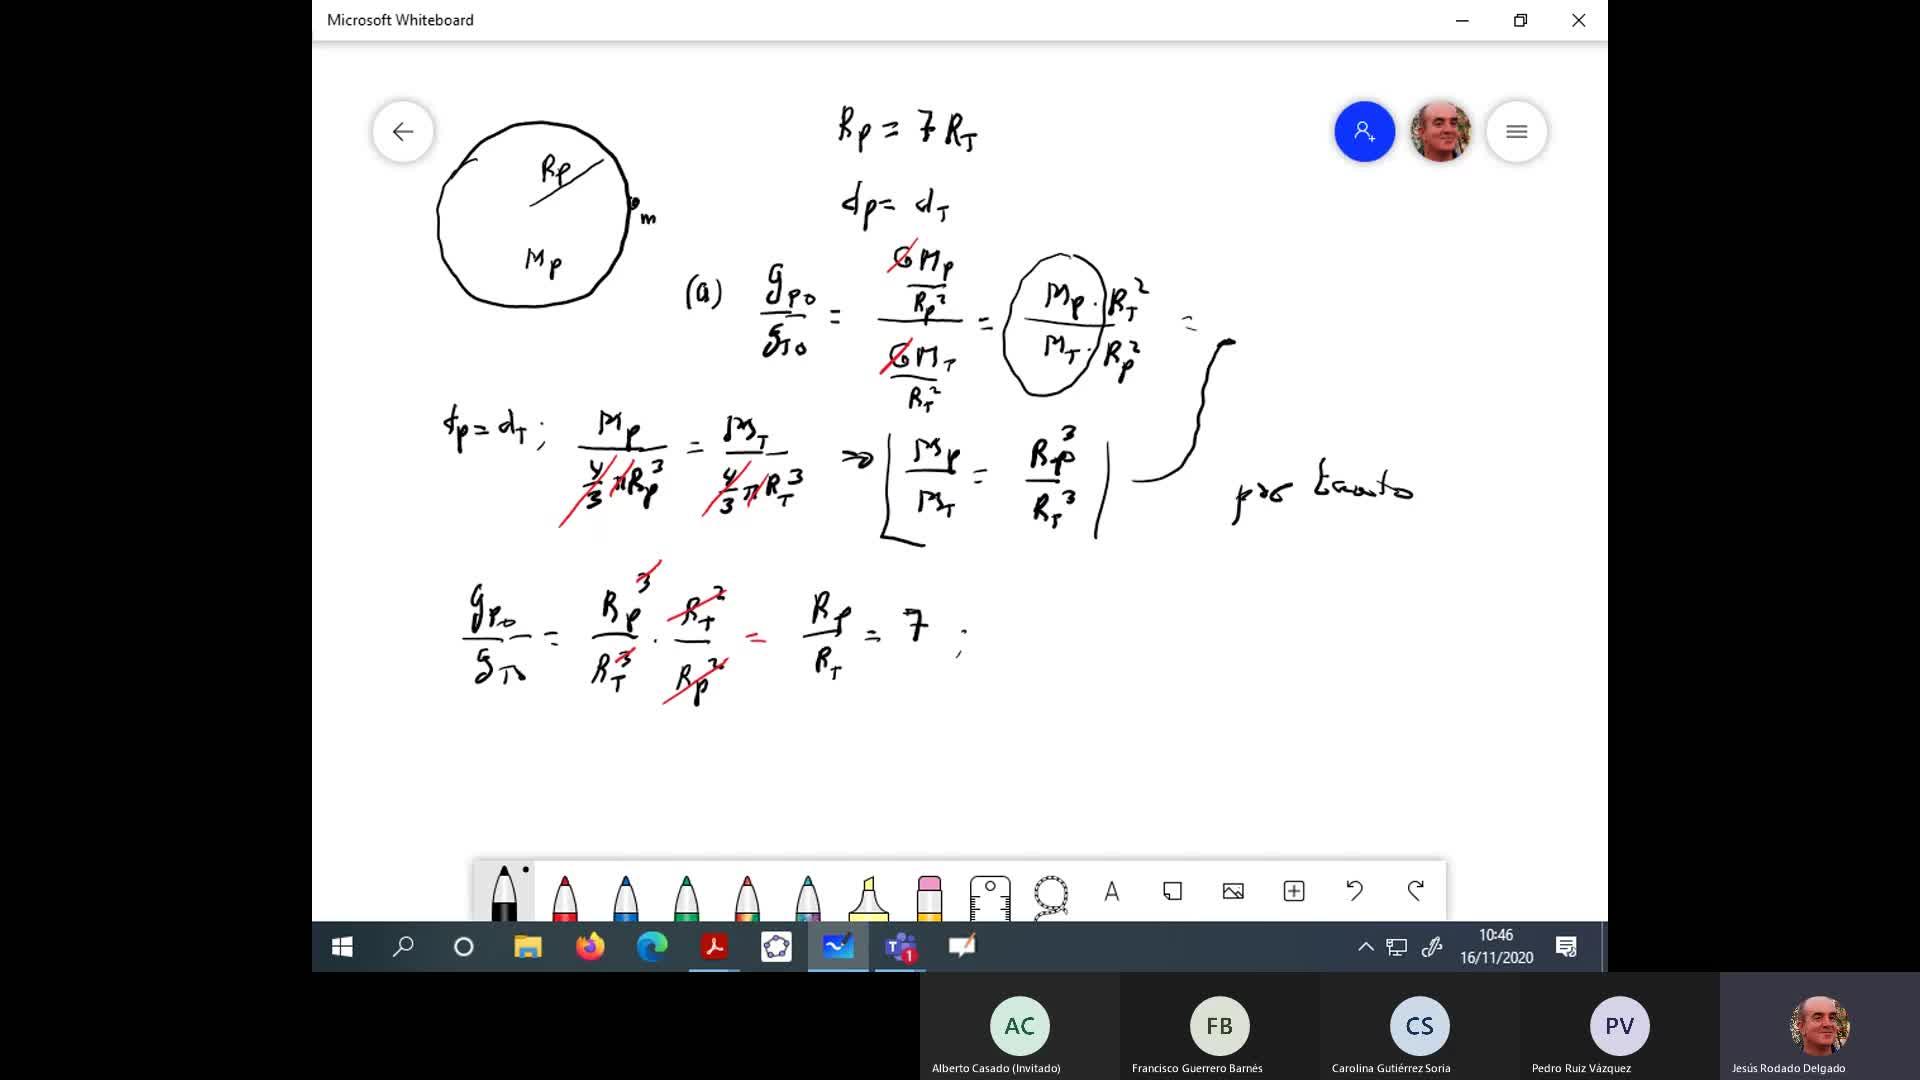 Microsoft Whiteboard
Rp = 7 R_T
Rp
dp = d_T
m
Mp
(a) g_po / g_To = (G Mp / Rp²) / (G M_T / R_T²) = (Mp · R_T²) / (M_T · Rp²) =
dp = d_T ; Mp / (4/3 π Rp³) = M_T / (4/3 π R_T³) ⇒ Mp / M_T = Rp³ / R_T³
por tanto
g_po / g_To = Rp³ / R_T³ · R_T² / Rp² = Rp / R_T = 7 ;
A
T 1
10:46
16/11/2020
AC
FB
CS
PV
Alberto Casado (Invitado)
Francisco Guerrero Barnés
Carolina Gutiérrez Soria
Pedro Ruiz Vázquez
Jesús Rodado Delgado